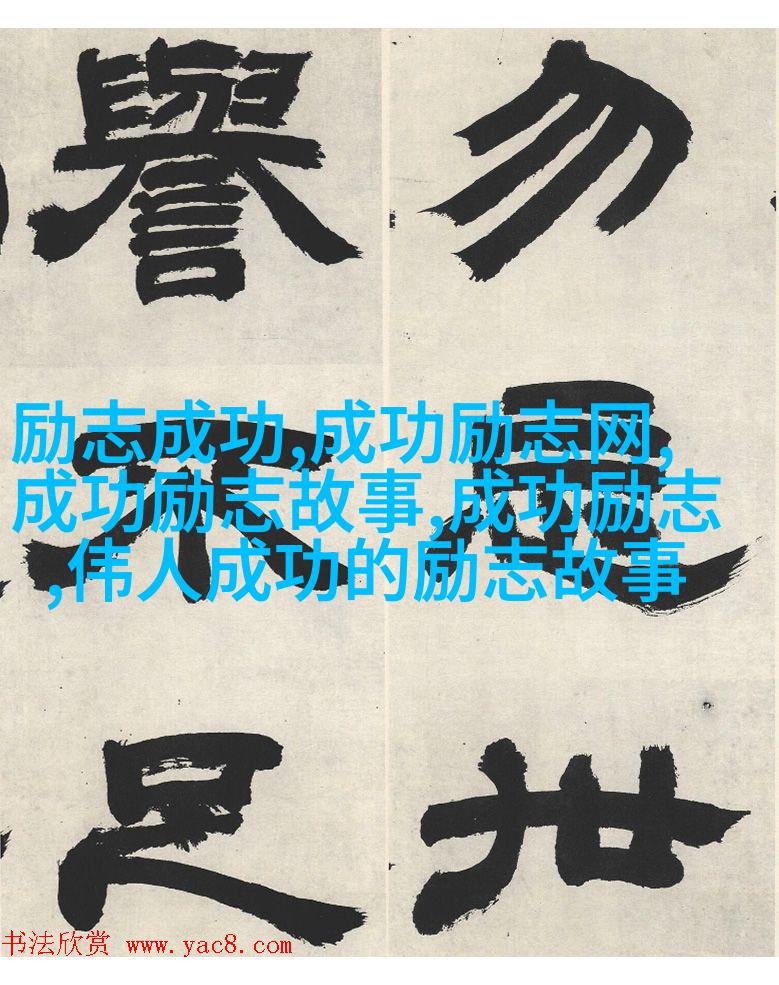 勿世
譽不足
励志成功,成功励志网,
成功励志故事,成功励志
,伟人成功的励志故事
书法欣赏 www.yac8.com